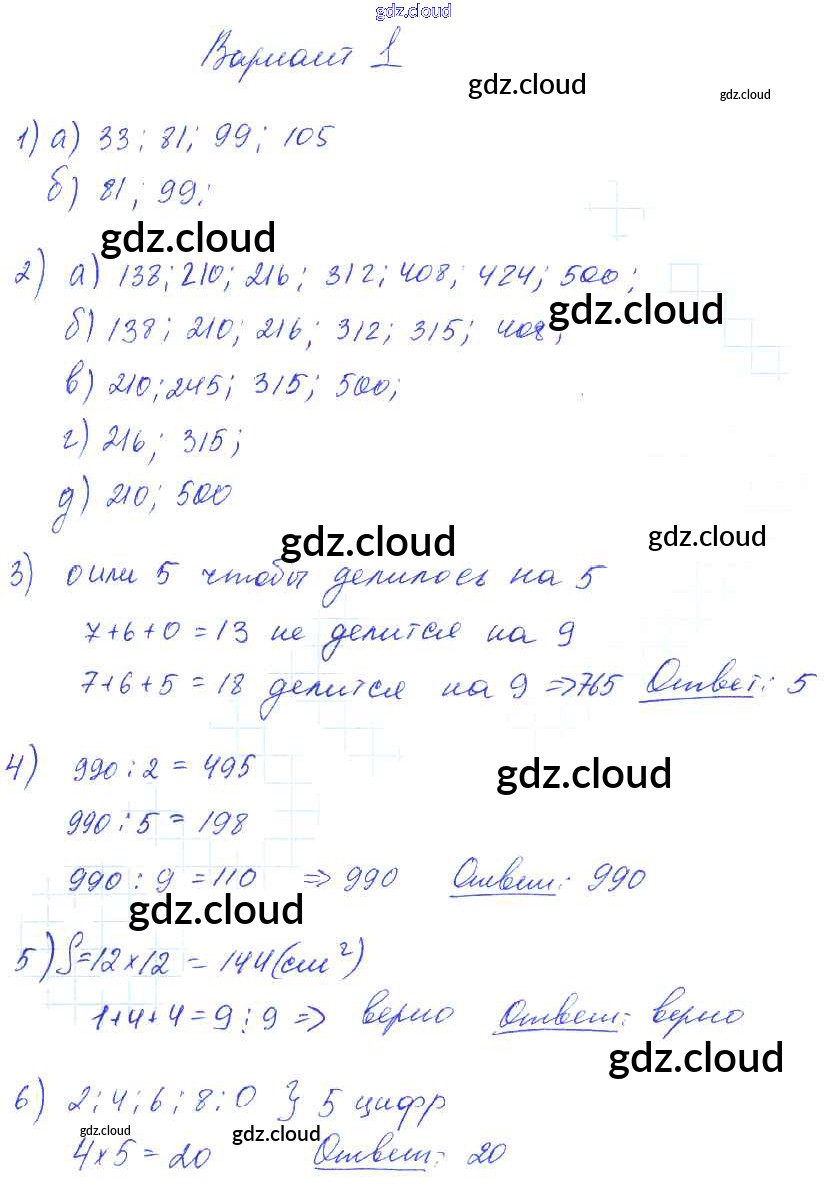 gdz.cloud
Вариант 1
gdz.cloud
gdz.cloud
1) а) 33; 81; 99; 105
б) 81; 99;
gdz.cloud
2) а) 138; 210; 216; 312; 408; 424; 500;
gdz.cloud
б) 138; 210; 216; 312; 315; 408;
в) 210; 245; 315; 500;
г) 216; 315;
д) 210; 500
gdz.cloud
gdz.cloud
3) 0 или 5 чтобы делилось на 5
7+6+0=13 не делится на 9
7+6+5=18 делится на 9 => 765 Ответ: 5
4) 990:2=495
gdz.cloud
990:5=198
990:9=110 => 990 Ответ: 990
gdz.cloud
5) S=12×12=144(см²)
1+4+4=9:9 => верно Ответ: верно
gdz.cloud
6) 2; 4; 6; 8; 0 } 5 цифр
gdz.cloud
gdz.cloud
4×5=20 Ответ: 20